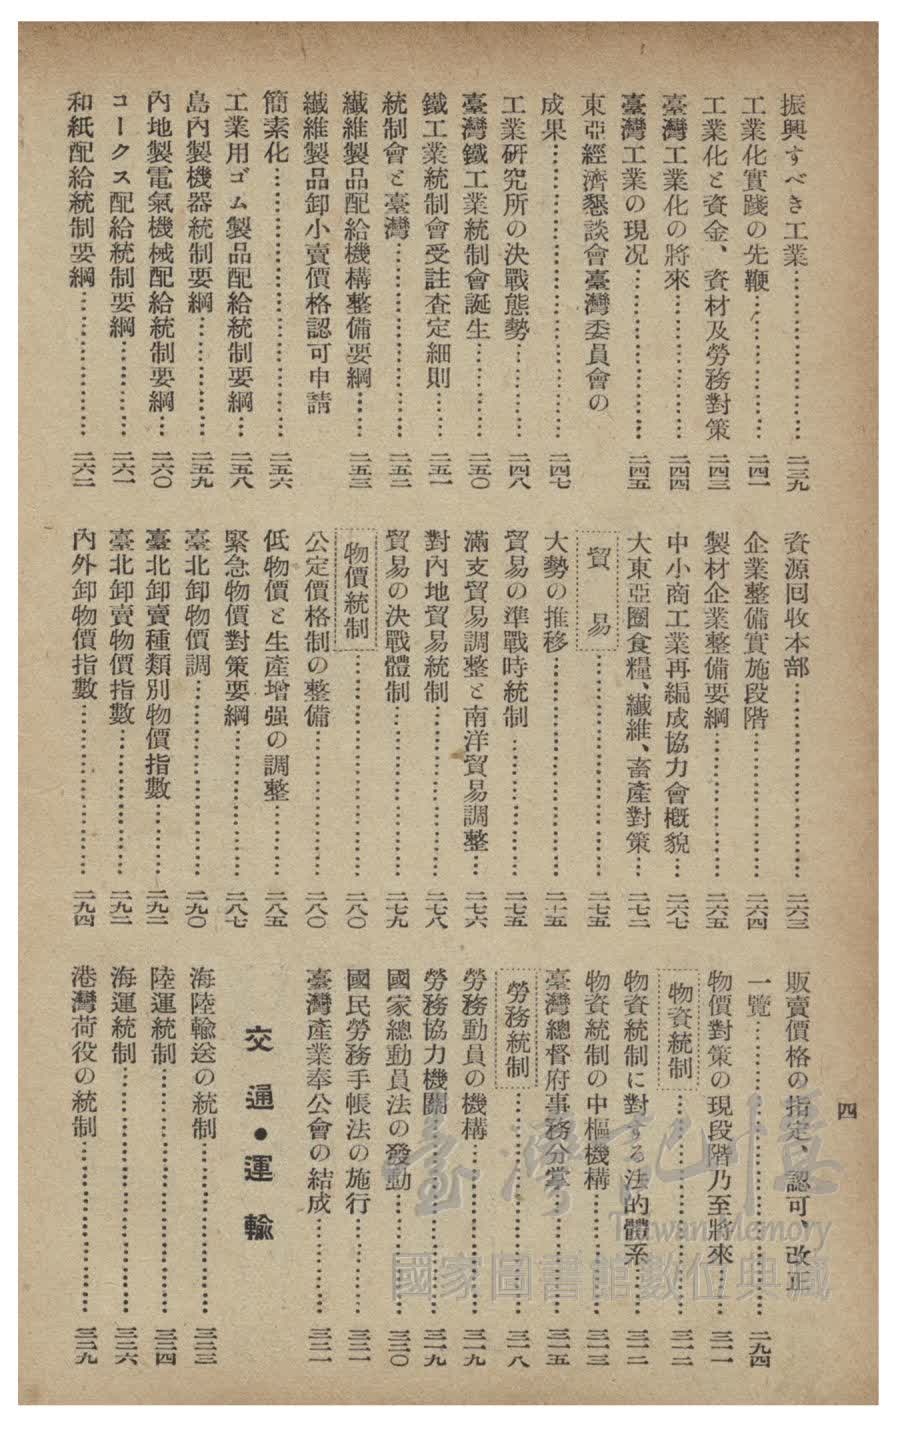 振興すべき工業……………………二三九
工業化實踐の先鞭……………………二四一
工業化と資金、資材及勞務對策 二四三
臺灣工業化の將來……………………二四四
臺灣工業の現況……………………二四五
東亞經濟懇談會臺灣委員會の
成果……………………二四七
工業硏究所の決戰態勢……………二四八
臺灣鐵工業統制會誕生……………二五〇
鐵工業統制會受註査定細則……二五一
統制會と臺灣……………………二五二
纖維製品配給機構整備要綱……二五三
纖維製品卸小賣價格認可申請
簡素化……………………二五六
工業用ゴム製品配給統制要綱…二五八
島內製機器統制要綱……………二五九
內地製電氣機械配給統制要綱…二六〇
コークス配給統制要綱……………二六一
和紙配給統制要綱……………………二六二
資源回收本部……………………二六三
企業整備實施段階……………………二六四
製材企業整備要綱……………………二六五
中小商工業再編成協力會槪貌…二六七
大東亞圈食糧、纖維、畜產對策…二七二
貿易……………………二七五
大勢の推移……………………二七五
貿易の準戰時統制……………………二七五
滿支貿易調整と南洋貿易調整…二七六
對內地貿易統制……………………二七八
貿易の決戰體制……………………二七九
物價統制……………………二八〇
公定價格制の整備……………………二八〇
低物價と生產增强の調整…………二八五
緊急物價對策要綱……………………二八七
臺北卸物價調……………………二九〇
臺北卸賣種類別物價指數…………二九二
臺北卸賣物價指數……………………二九二
內外卸物價指數……………………二九四
販賣價格の指定、認可、改正
一覽……………………二九四
物價對策の現段階乃至將來……三一一
物資統制……………………三一二
物資統制に對する法的體系……三一二
物資統制の中樞機構……………三一三
臺灣總督府事務分掌……………三一五
勞務統制……………………三一八
勞務動員の機構……………………三一九
勞務協力機關……………………三一九
國家總動員法の發動……………三二〇
國民勞務手帳法の施行……………三二一
臺灣產業奉公會の結成……………三二一
交通●運輸
海陸輸送の統制……………………三二三
陸運統制……………………三二四
海運統制……………………三二六
港灣荷役の統制……………………三二九
四
臺灣記憶
Taiwan Memory
國家圖書館數位典藏